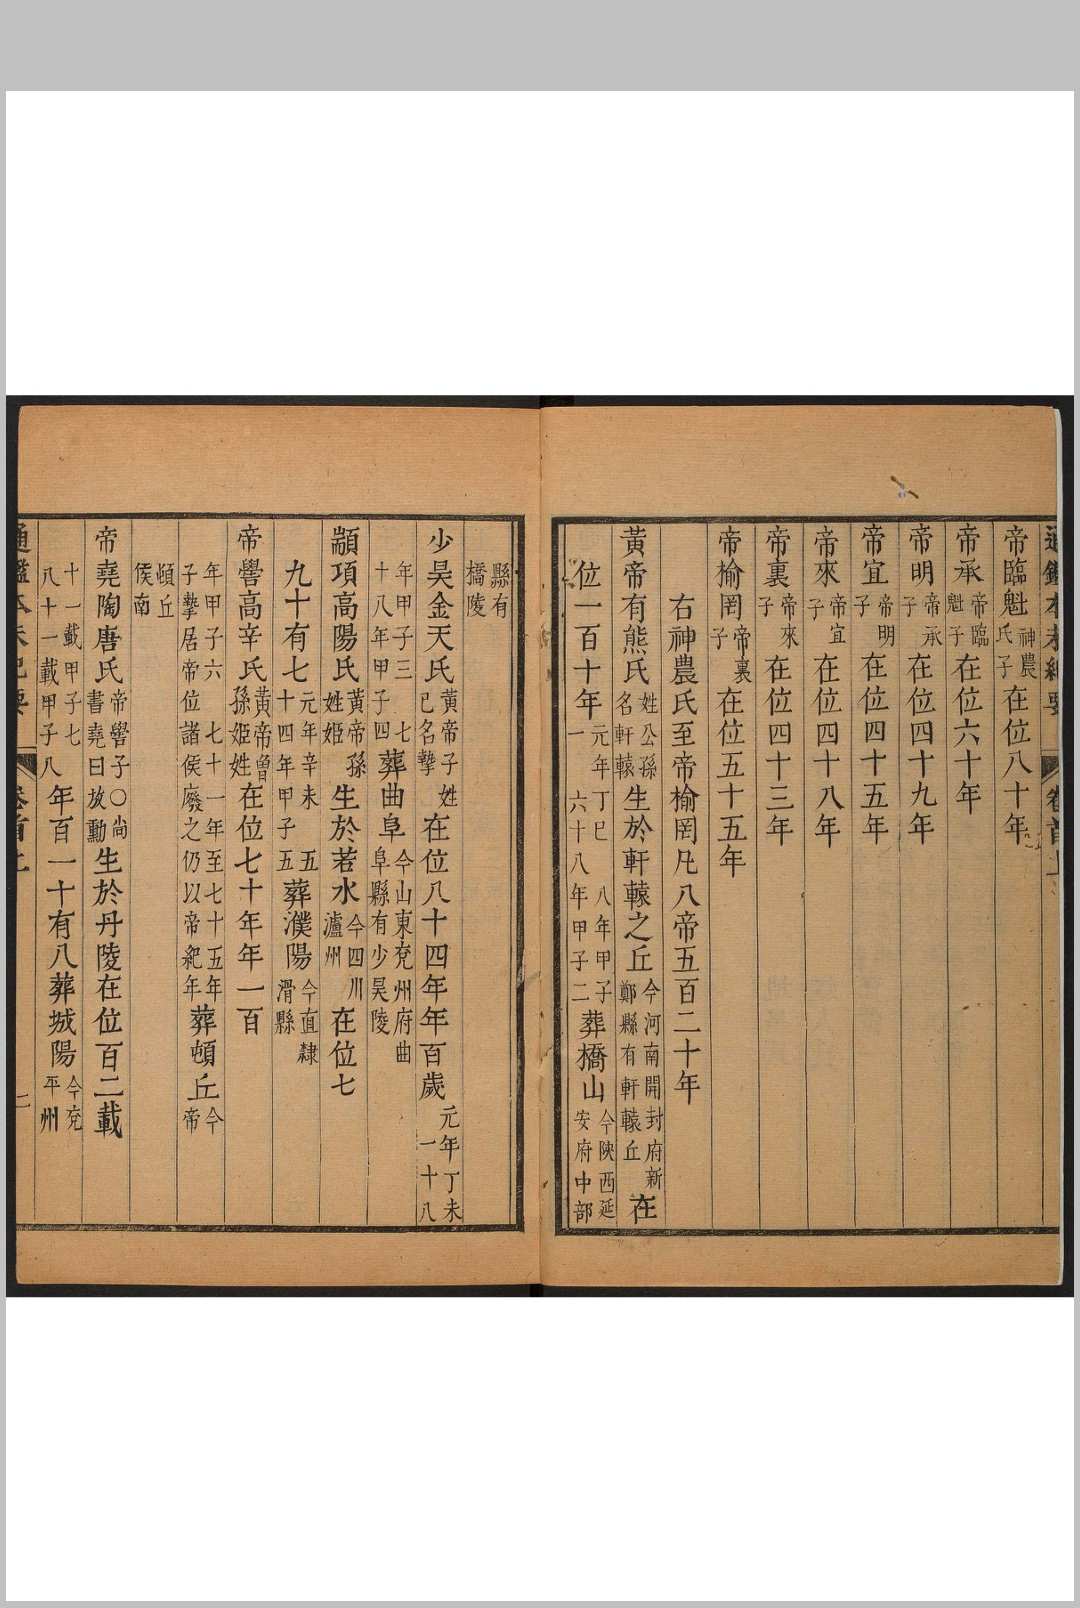 帝臨魁神農氏子在位八十年
帝承帝臨魁子在位六十年
帝明帝承子在位四十九年
帝宜帝明子在位四十五年
帝來帝宜子在位四十八年
帝裏帝來子在位四十三年
帝榆罔帝裏子在位五十五年
右神農氏至帝榆罔凡八帝五百二十年
黃帝有熊氏姓公孫名軒轅生於軒轅之丘今河南開封府新鄭縣有軒轅丘在
位一百十年元年丁巳八年甲子一六十八年甲子二葬橋山今陝西延安府中部
縣有橋陵
少昊金天氏黃帝子姓己名摯在位八十四年年百歲元年丁未一十八
年甲子三七十八年甲子四葬曲阜今山東兗州府曲阜縣有少昊陵
顓項高陽氏黃帝孫姓姬生於若水今四川瀘州在位七
九十有七元年辛未五十四年甲子五葬濮陽今直隸滑縣
帝嚳高辛氏黃帝曾孫姬姓在位七十年年一百
年甲子六七十一年至七十五年子摯居帝位諸侯廢之仍以帝紀年葬頓丘今帝
頓丘侯南
帝堯陶唐氏帝嚳子○尚書堯曰放勳生於丹陵在位百二載
十一載甲子七八十一載甲子八年百一十有八葬城陽今兗平州
通鑑本末紀要
卷首上
二